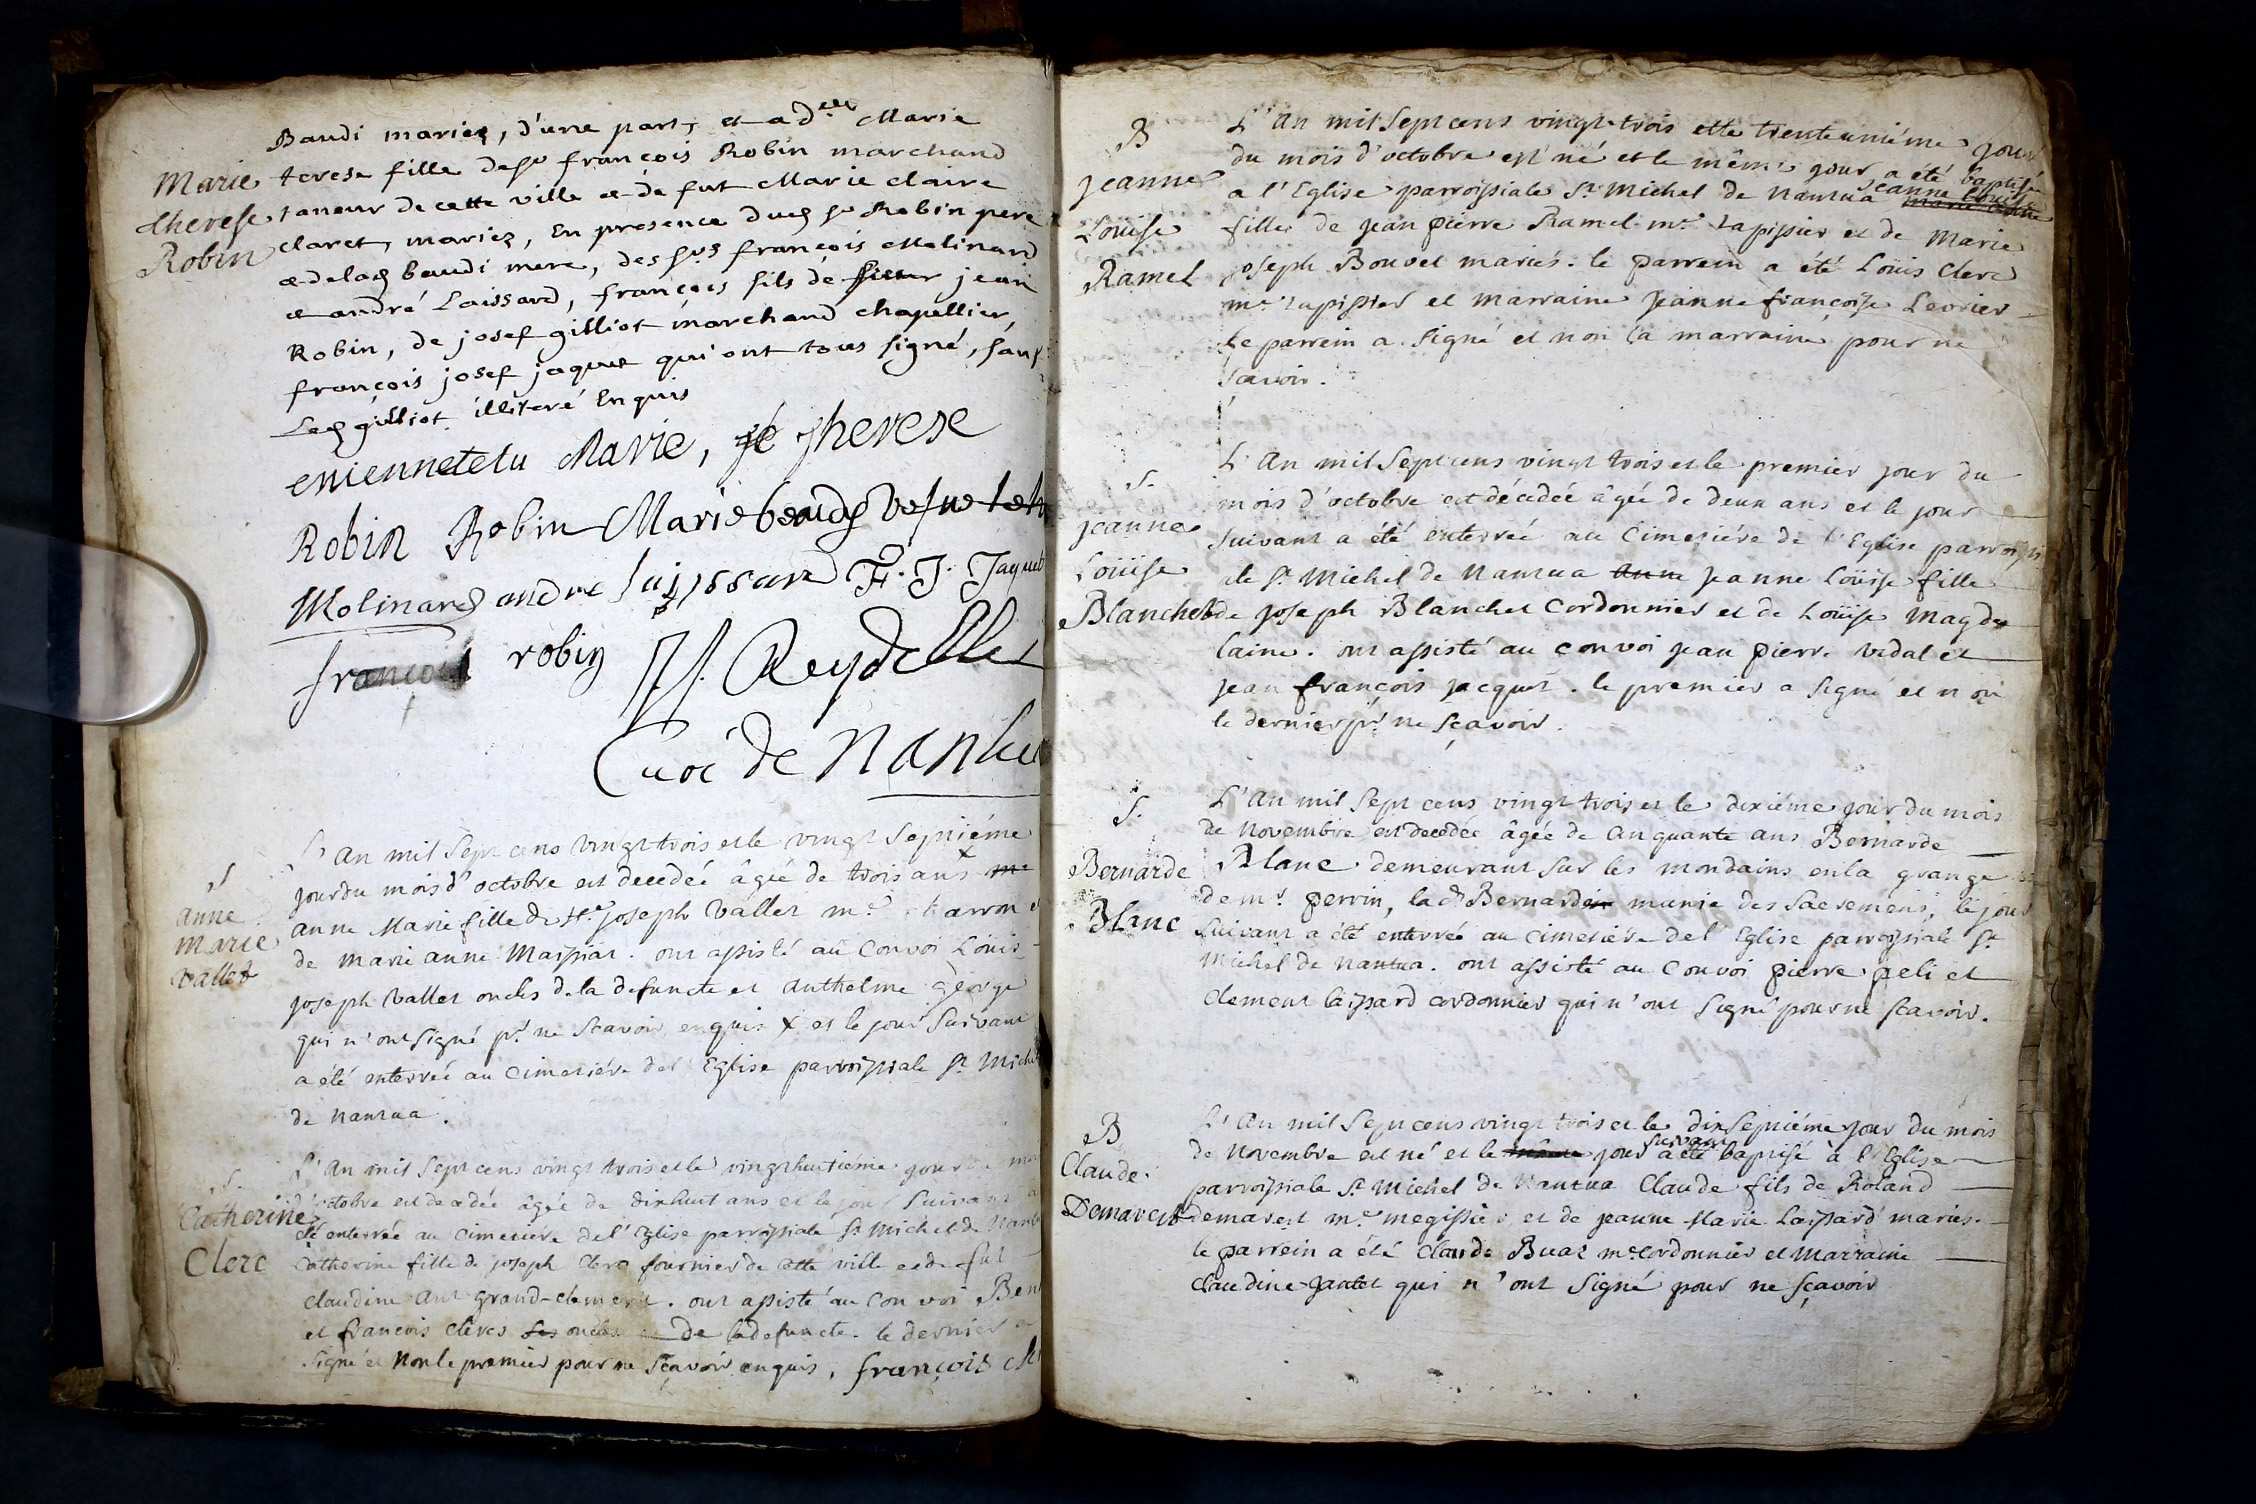 Baudi mariez, d'une part, et a d.elle Marie
Marie
Therese
Robin
terese fille de sr françois Robin marchand
taneur de cette ville et de fut Marie claire
claret, mariez, En presence dud sr Robin pere
et delad baudi mere, des srs françois Molinard
et andré Laissard, françois fils de sieur jean
Robin, de josef gilliot marchand chapellier,
françois josef jaquet qui ont tous signé, sauf
Led gilliot illiteré Enquis
Marie, Therese
Robin Robin Marie beaudy
Molinard andre laissard F. J. Jaquet
françois robin J. J. Reydellet
Curé de Nantua
S
anne
Marie
Vallet
L'An mil Sept cens vingt trois et le vingt Septiéme
jour du mois d'octobre est decedée âgée de trois ans
anne Marie fille de Joseph Vallet me charron et
de Marie anne Maissiat. ont assisté au Convoi Louis
joseph Vallet oncles de la defuncte et Anthelme George
qui n'ont signé pr ne Scavoir enquis X et le jour Suivant
a été enterrée au Cimetiére de l'Eglise parroissiale St Michel
de Nantua.
S.
Catherine
Clerc
L'An mil Sept cens vingt trois et le vingt huitiéme jour du mois
d'octobre est decedée âgée de dix huit ans et le jour Suivant a
été enterrée au Cimetiére de l'Eglise parroissiale St Michel de Nantua
Catherine fille de joseph Clerc fournier de cette ville et de fut
Claudine Ant grand-clement. ont assisté au Convoi Ben
et françois Clercs ses oncles de la defuncte. le dernier a
Signé et Non le premier pour ne Sçavoir enquis. françois
B
jeanne
Loüise
Ramel
L'An mil Sept cens vingt-trois et le trente uniéme jour
du mois d'octobre est né et le même jour a été baptisé
a l'Eglise parroissiale St Michel de Nantua Jeanne Loüise
fille de jean pierre Ramel me tapissier et de Marie
joseph Bouvet mariés. le parrein a été Loüis Clerc
me tapissier et marraine jeanne françoise Levrier
Le parrein a Signé et non la marraine pour ne
Scavoir.
S.
jeanne
Loüise
Blanchet
L'An mil Sept cens vingt trois et le premier jour du
mois d'octobre est décedée âgée de deux ans et le jour
Suivant a été enterrée au Cimetiére de l'Eglise parroissia
le St Michel de Nantua Anne jeanne Loüise fille
de joseph Blanchet Cordonnier et de Loüise Magde
laine. ont assisté au Convoi jean pierre Vidal et
jean françois jacquet. le premier a signé et non
le dernier pr ne sçavoir.
S.
Bernarde
Blanc
L'An mil Sept cens vingt trois et le dixiéme jour du mois
de Novembre est decedée âgée de Cinquante ans Bernarde
Blanc demeurant Sur les mondains en la grange
de mr perrin, la de Bernarde munie des Sacremens, le jour
Suivant a été enterrée au cimetiére de l'Eglise parroissiale St
Michel de Nantua. ont assisté au Convoi pierre peli et
clement laissard cordonnier qui n'ont signé pour ne scavoir.
B
Claude
Demarest
L'An mil Sept cens vingt trois et le dix Septiéme jour du mois
de Novembre est né et le même jour suivant a été baptisé à l'Eglise
parroissiale St Michel de Nantua Claude fils de Roland
demarest me megissier et de jeanne Marie Laissard mariés.
le parrein a été Claude Buat me Cordonnier et Marraine
Claudine Jantet qui n'ont signé pour ne sçavoir